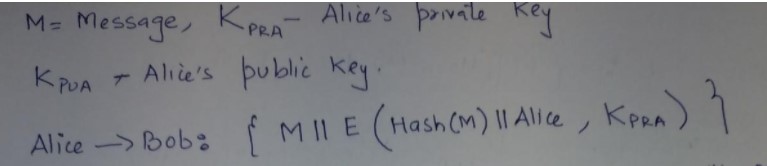 M= Message, KPRA- Alice's private key
KPUA - Alice's public key.
Alice -> Bob: { M || E (Hash(M) || Alice , KPRA) }